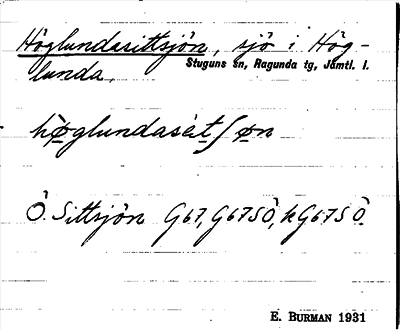 Höglundasittsjön, sjö i Hög-
Stuguns sn, Ragunda tg, Jämtl. l.
lunda.
hø̀glundasàt ʃøn
Ö. Sittsjön G67, G67SÖ, hG67SÖ
E. BURMAN 1931